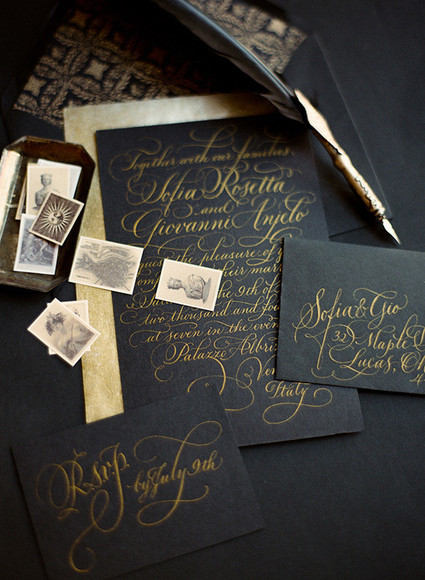 Together with our families,
Sofia Rosetta
and
Giovanni Anjelo
the pleasure of
their mar
the 9th
two thousand and fou
at seven in the even
Palazzo Albri
Ve
Italy
Sofia & Gio
32 Maple
Lucas, Oh
Rsvp
by July 9th